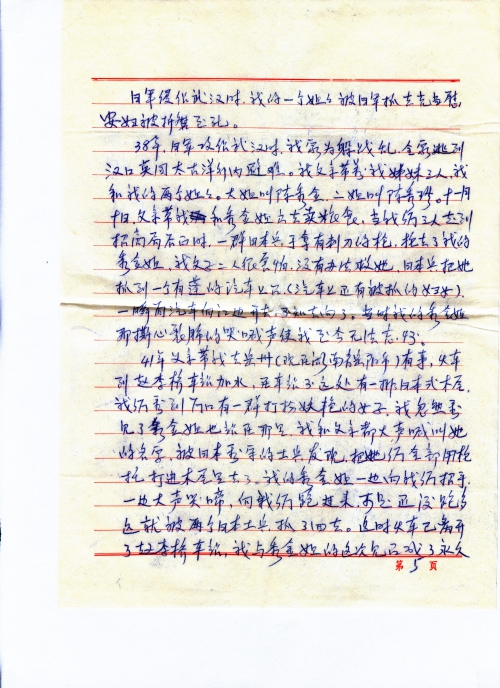 日军侵佔武汉时，我的一个姐姐被日军抓去当慰
安妇被折磨至死。
38年，日军攻佔武汉时，我家为躲战乱，全家逃到
汉口英国太古洋行内避难。我父亲带着我姊妹三人，我
和我的两个姐姐。大姐叫陈秀金，二姐叫陈秀珍。十一月
十日，父亲带我和秀金姐出去买粮食，当我们三人走到
招商局后面时，一群日本兵手拿有刺刀的枪，抢去了我的
秀金姐，我父子二人很害怕，没有办法救她，日本兵把她
抓到一个有蓬的汽车上（汽车上还有被抓的妇女），
一瞬间汽车向江边开去，不知去向了。当时我的秀金姐
那撕心裂肺的哭喊声使我至今无法忘却。
41年父亲带我去岳州（现在湖南省岳阳市）有事，火车
到赵李桥车站加水，在车站不远处有一排日本式木屋，
我们看到门口有一群打扮妖艳的女子，我忽然看
见了秀金姐也站在那里，我和父亲都大声喊叫她
的名字，被日本看守的士兵发现，把她们全部用枪
托打进木屋里去了。我的秀金姐一边向我们招手，
一边大声哭啼，向我们跑过来，可是还没跑多
远就被两个日本士兵抓了回去。这时火车已离开
了赵李桥车站，我与秀金姐的这次见面成了永久
第 5 页